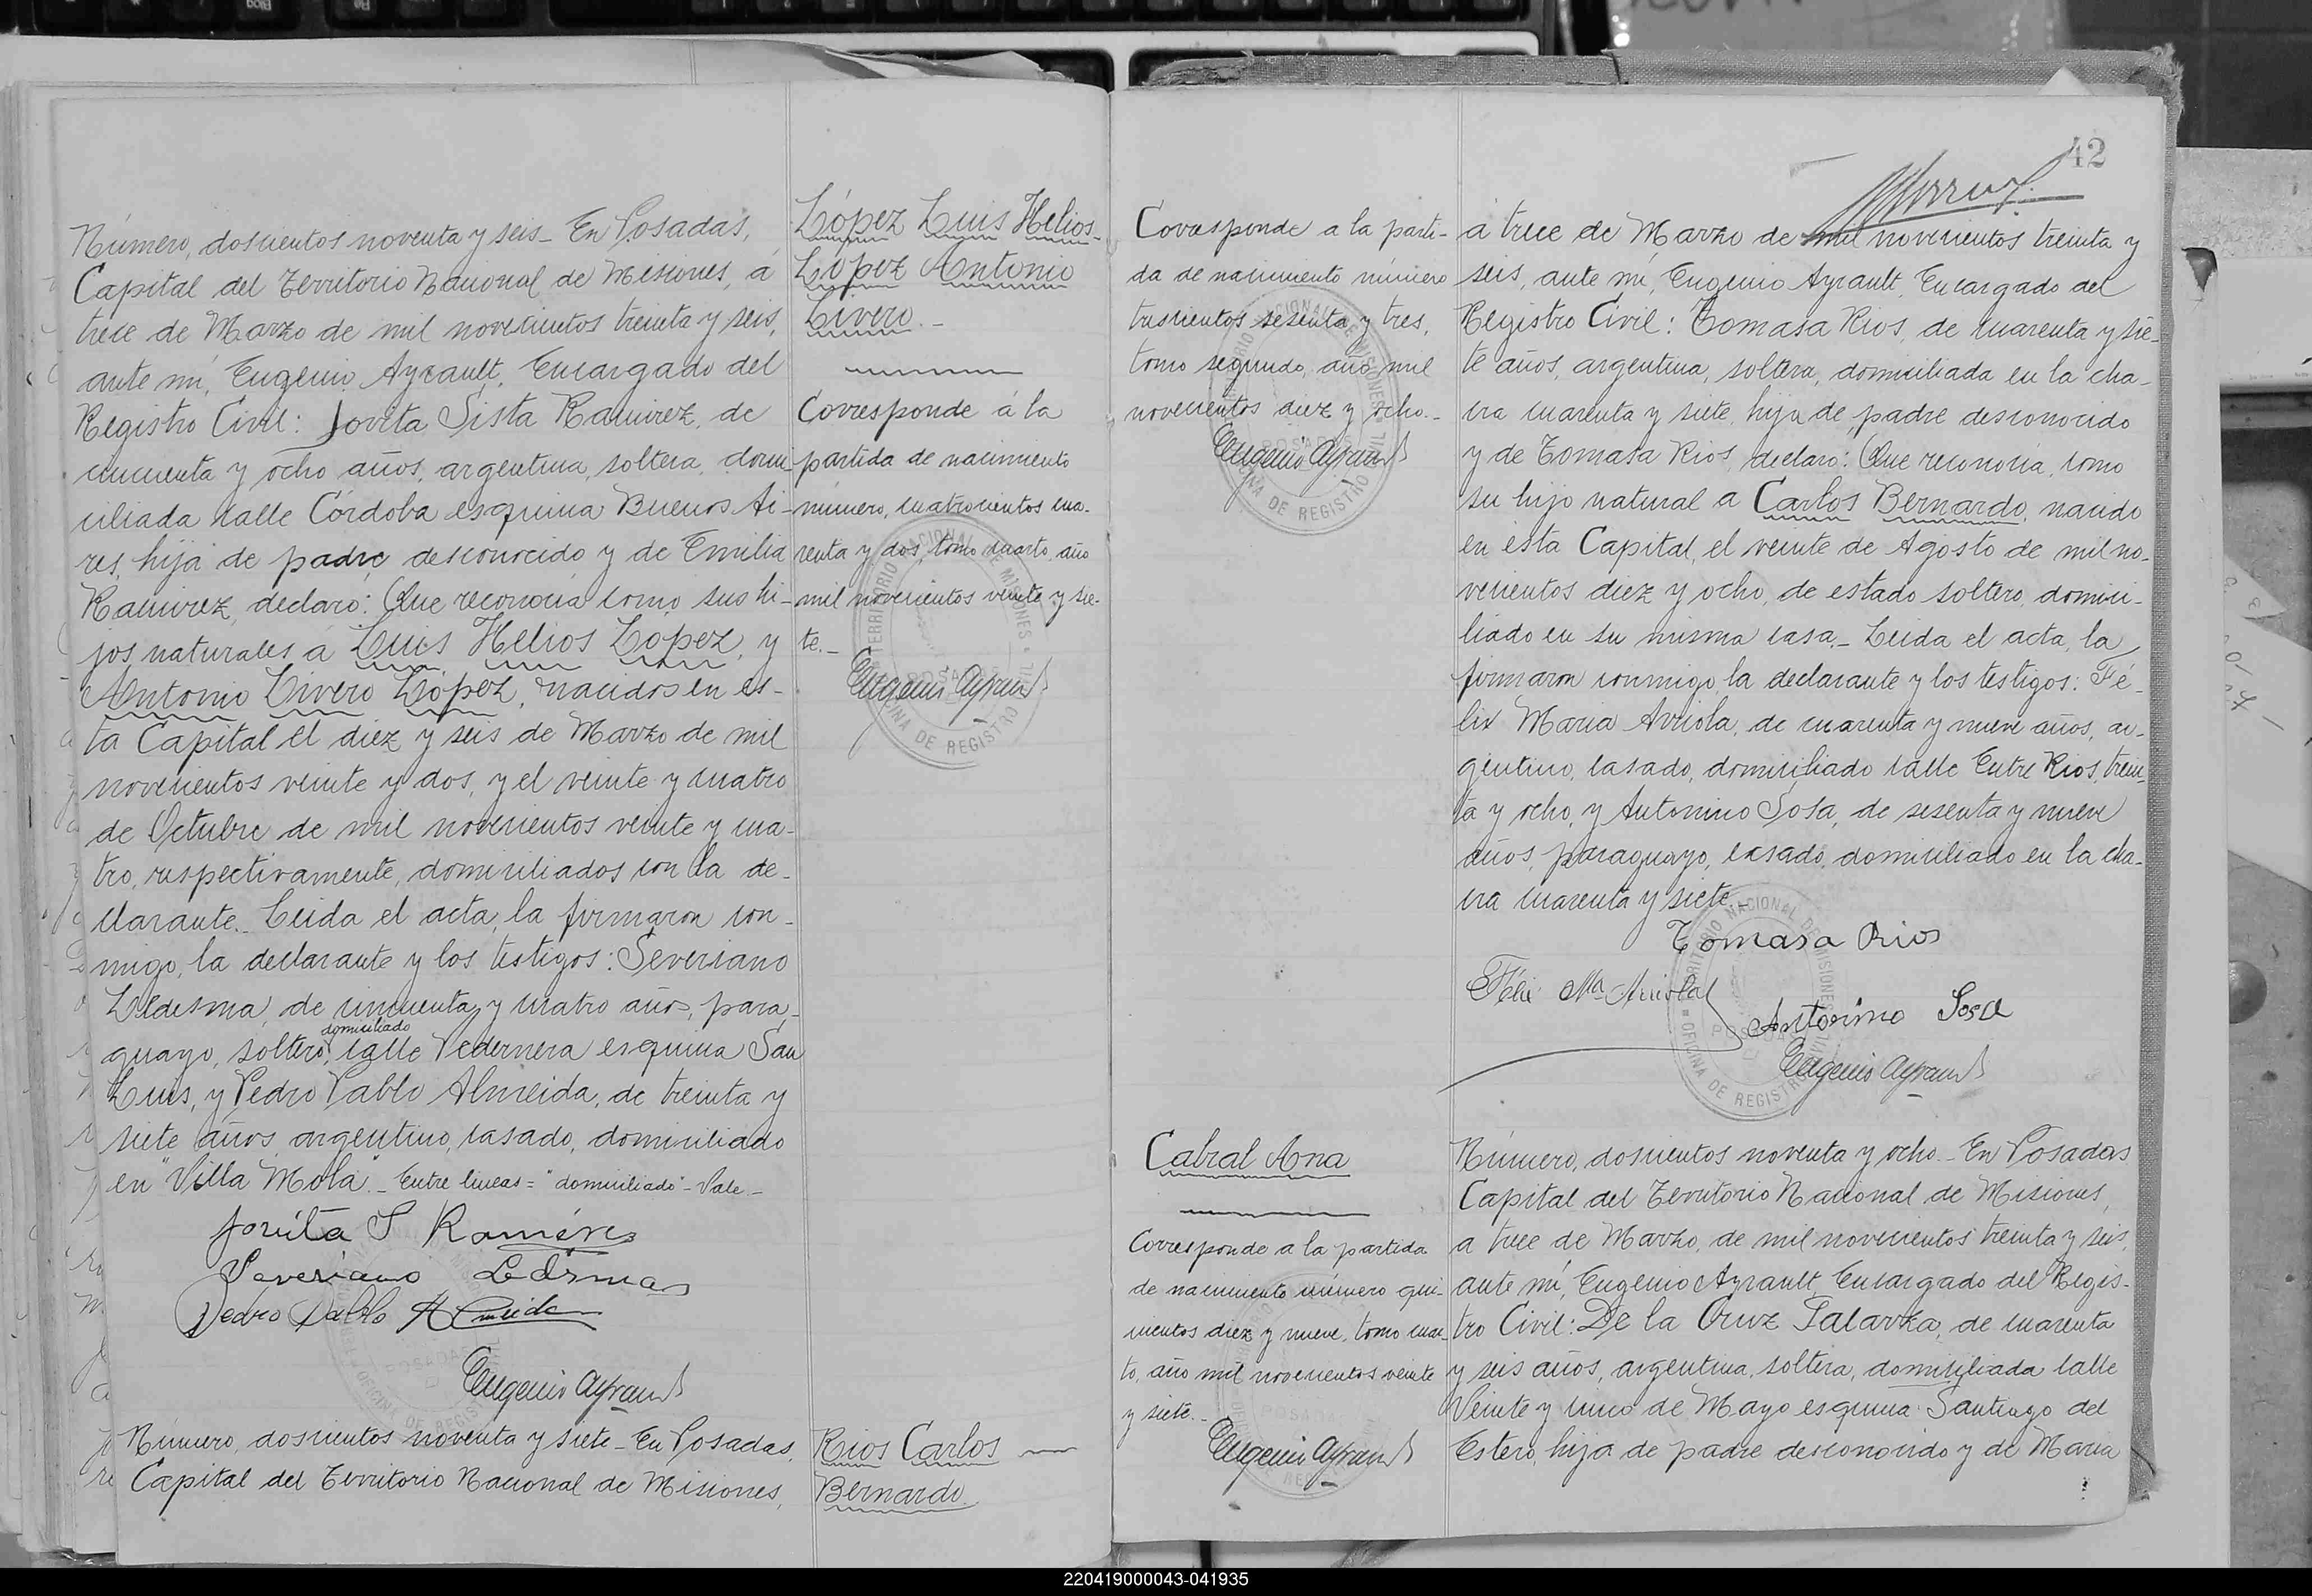 Número, doscientos noventa y seis - En Posadas,
Capital del Territorio Nacional de Misiones, á
trece de Marzo de mil novecientos treinta y seis,
ante mí, Eugenio Ayrault, Encargado del
Registro Civil: Jovita Sista Ramirez, de
cincuenta y ocho años, argentina, soltera, domi-
ciliada calle Córdoba esquina Buenos Ai-
res, hija de padre desconocido y de Emilia
Ramirez, declaró: Que reconocia como sus hi-
jos naturales a Luis Helios López, y
Antonio Livero López, nacidos en es-
ta Capital el diez y seis de Marzo de mil
novecientos veinte y dos, y el veinte y cuatro
de Octubre de mil novecientos veinte y cua-
tro, respectivamente, domiciliados con la de-
clarante. Leida el acta, la firmaron con-
migo, la declarante y los testigos: Severiano
Ledesma, de cincuenta y cuatro años, para-
domiciliado
guayo, soltero, calle Pedernera esquina San
Luis, y Pedro Pablo Almeida, de treinta y
siete años, argentino, casado, domiciliado
en "Villa Mola". - Entre lineas = "domiciliado" - Vale -
Jovita S Ramírez
Severiano Ledesma
Pedro Pablo Almeida
Eugenio Ayrault
Número, doscientos noventa y siete - En Posadas,
Capital del Territorio Nacional de Misiones,
López Luis Helios -
López Antonio
Livero. -
Corresponde á la
partida de nacimiento
número, cuatrocientos cua-
renta y dos, tomo cuarto, año
mil novecientos veinte y sie-
te. -
Eugenio Ayrault
TERRITORIO NACIONAL DE MISIONES
POSADAS
OFICINA DE REGISTRO CIVIL
Rios Carlos
Bernardo.
42
Corresponde a la parti-
da de nacimiento número
trescientos sesenta y tres,
tomo segundo, año mil
novecientos diez y ocho. -
Eugenio Ayrault
TERRITORIO NACIONAL DE MISIONES
POSADAS
OFICINA DE REGISTRO CIVIL
á trece de Marzo de mil novecientos treinta y
seis, ante mí, Eugenio Ayrault, Encargado del
Registro Civil: Tomasa Rios, de cuarenta y sie-
te años, argentina, soltera, domiciliada en la cha-
cra cuarenta y siete, hija de padre desconocido
y de Tomasa Rios, declaró: Que reconocia como
su hijo natural a Carlos Bernardo, nacido
en esta Capital, el veinte de Agosto de mil no-
vecientos diez y ocho, de estado soltero, domici-
liado en su misma casa. - Leida el acta, la
firmaron conmigo, la declarante y los testigos: Fé-
lix Maria Arriola, de cuarenta y nueve años, ar-
gentino, casado, domiciliado calle Entre Rios, trein-
ta y ocho, y Antonino Sosa, de sesenta y nueve
años, paraguayo, casado, domiciliado en la cha-
cra cuarenta y siete. -
Tomasa Rios
Félix Ma Arriola
Antonino Sosa
Eugenio Ayrault
TERRITORIO NACIONAL DE MISIONES
POSADAS
OFICINA DE REGISTRO CIVIL
Cabral Ana
Corresponde a la partida
de nacimiento número qui-
nientos diez y nueve, tomo cuar-
to, año mil novecientos veinte
y siete. -
Eugenio Ayrault
Número, doscientos noventa y ocho. - En Posadas
Capital del Territorio Nacional de Misiones,
a trece de Marzo, de mil novecientos treinta y seis,
ante mí, Eugenio Ayrault, Encargado del Regis-
tro Civil: De la Cruz Galarza, de cuarenta
y seis años, argentina, soltera, domiciliada calle
Veinte y cinco de Mayo esquina Santiago del
Estero, hija de padre desconocido y de Maria
220419000043-041935